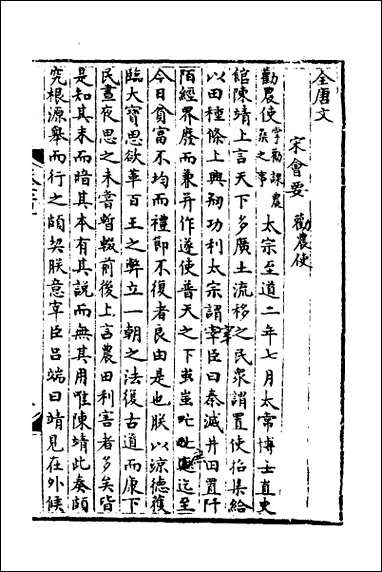 全唐文
宋會要 勸農使
勸農使掌勸課農桑之事 太宗至道二年七月太常博士直史
館陳靖上言天下多廣土流移之民衆謂置使招集給
以田種條上興剏功利太宗謂宰臣曰秦滅井田置阡
陌經界廢而兼并作遂使普天之下蚩蚩叱迄至
今日貧富不均而禮節不復者良由是也朕以涼德獲
臨大寶思欲革百王之弊立一朝之法復古道而康下
民晝夜思之未嘗暫輟前後上言農田利害者多矣皆
是知其末而暗其本有其說而無其用唯陳靖此奏頗
究根源舉而行之頗契朕意宰臣呂端曰靖見在外候